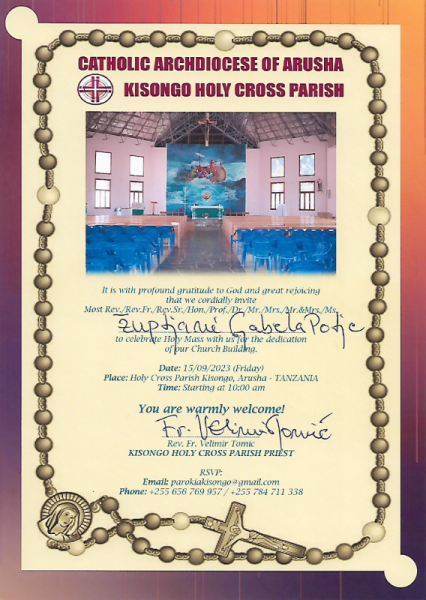 CATHOLIC ARCHDIOCESE OF ARUSHA
KISONGO HOLY CROSS PARISH
It is with profound gratitude to God and great rejoicing
that we cordially invite
Most Rev./Rev.Fr./Rev.Sr./Hon./Prof./Dr./Mr./Mrs./Mr.&Mrs./Ms.
Župljani Gabela Polje
to celebrate Holy Mass with us for the dedication
of our Church Building.
Date: 15/09/2023 (Friday)
Place: Holy Cross Parish Kisongo, Arusha - TANZANIA
Time: Starting at 10:00 am
You are warmly welcome!
Fr. Velimir Tomić
Rev. Fr. Velimir Tomic
KISONGO HOLY CROSS PARISH PRIEST
RSVP:
Email: parokiakisongo@gmail.com
Phone: +255 656 769 957 / +255 784 711 338